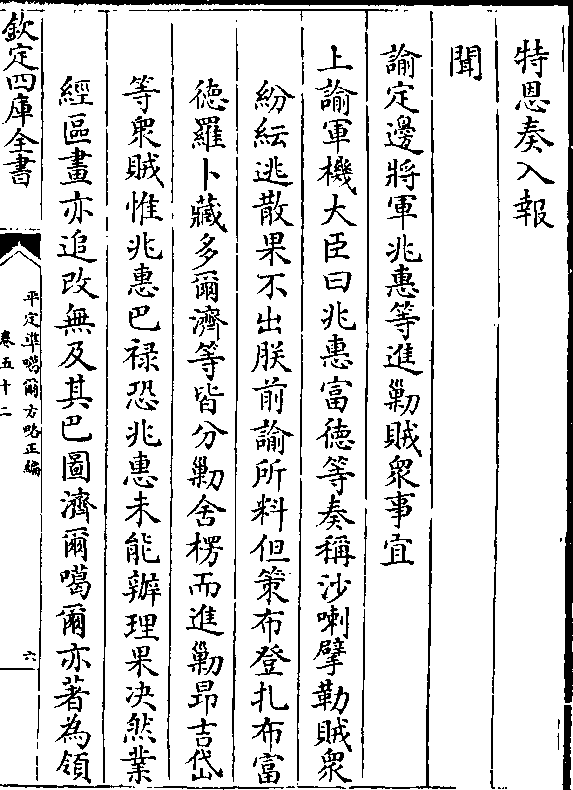 特恩奏入報
聞
諭定邊將軍兆惠等進勦賊衆事宜
上諭軍機大臣曰兆惠富徳等奏稱沙喇擘勒賊衆
紛紜逃散果不出朕前諭所料但策布登扎布富
徳羅卜藏多爾濟等皆分勦舍楞而進勦昻吉岱
等衆賊惟兆惠巴禄恐兆惠未能辦理果决然業
經區畫亦追改無及其巴圖濟爾噶爾亦著為領
欽定四庫全書
平定準噶爾方略正編
卷五十二
六